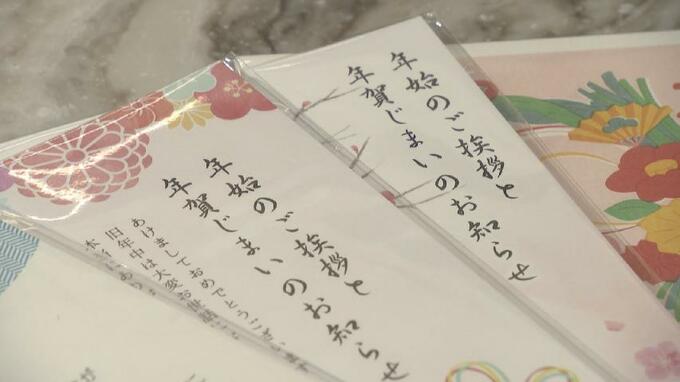 年始のご挨拶と
年賀じまいのお知らせ
年始のご挨拶と
年賀じまいのお知らせ
あけましておめでとうござい
旧年中は大変お世話